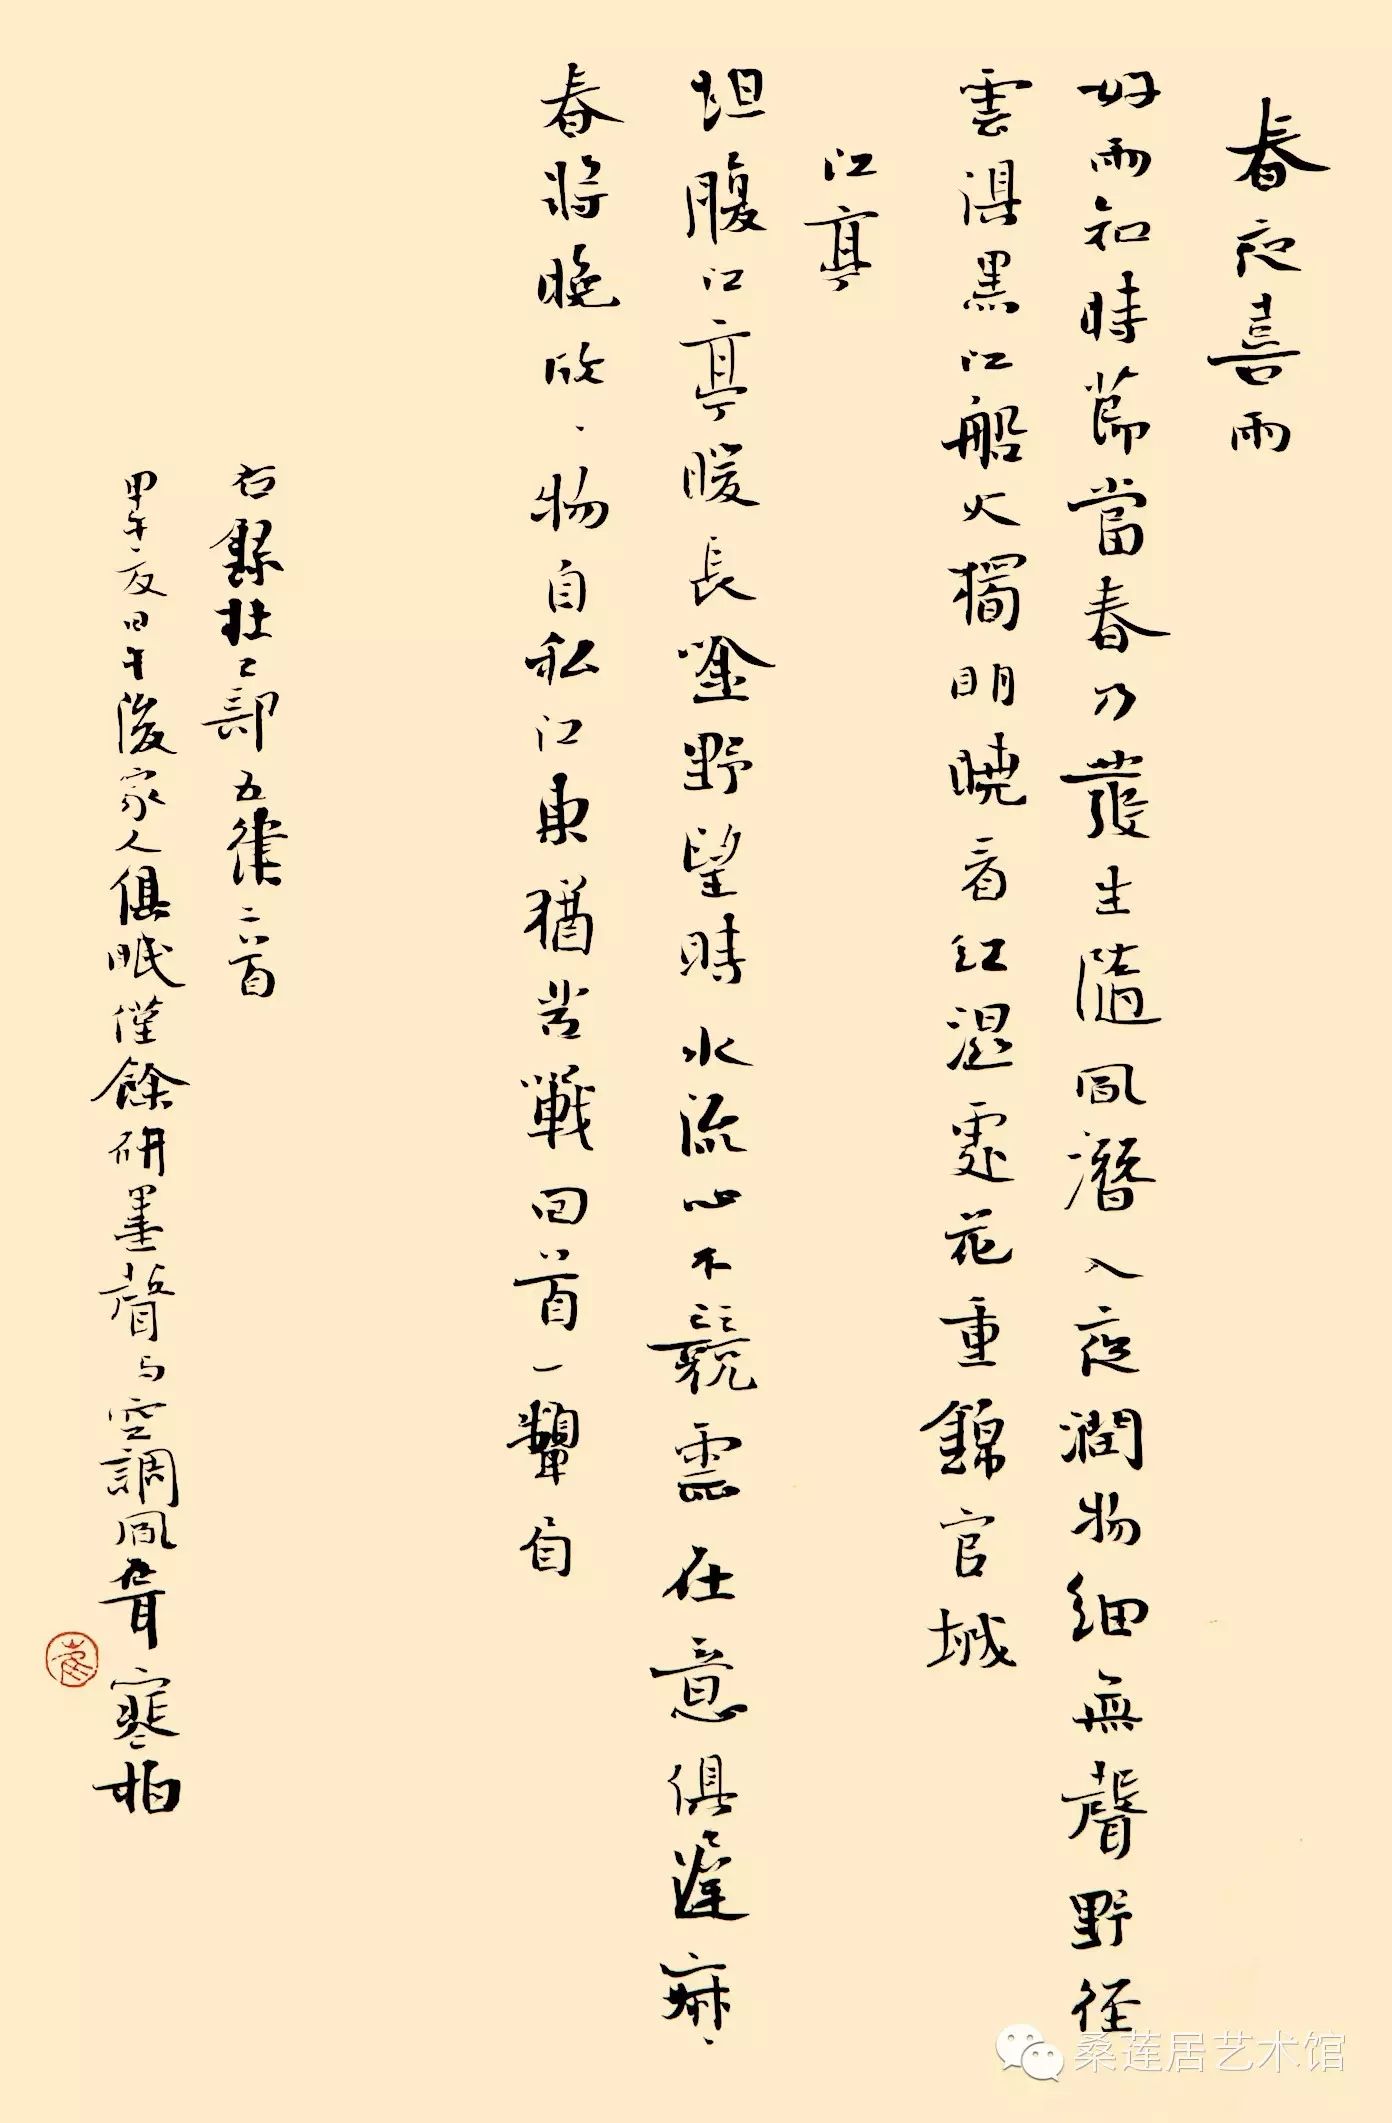 春夜喜雨
好雨知時節當春乃發生隨風潛入夜潤物細無聲野徑
雲俱黑江船火獨明曉看紅濕處花重錦官城
江亭
坦腹江亭暖長吟野望時水流心不競雲在意俱遲寂〻
春將晚欣〻物自私江東猶苦戰回首一顰眉
右錄杜工部五律二首
甲午夏日午後家人俱眠僅餘研墨聲与空調風聲寒柏
桑莲居艺术馆